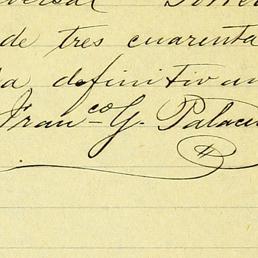 de tres cuarenta
definitiv
Fran.co G. Palaci